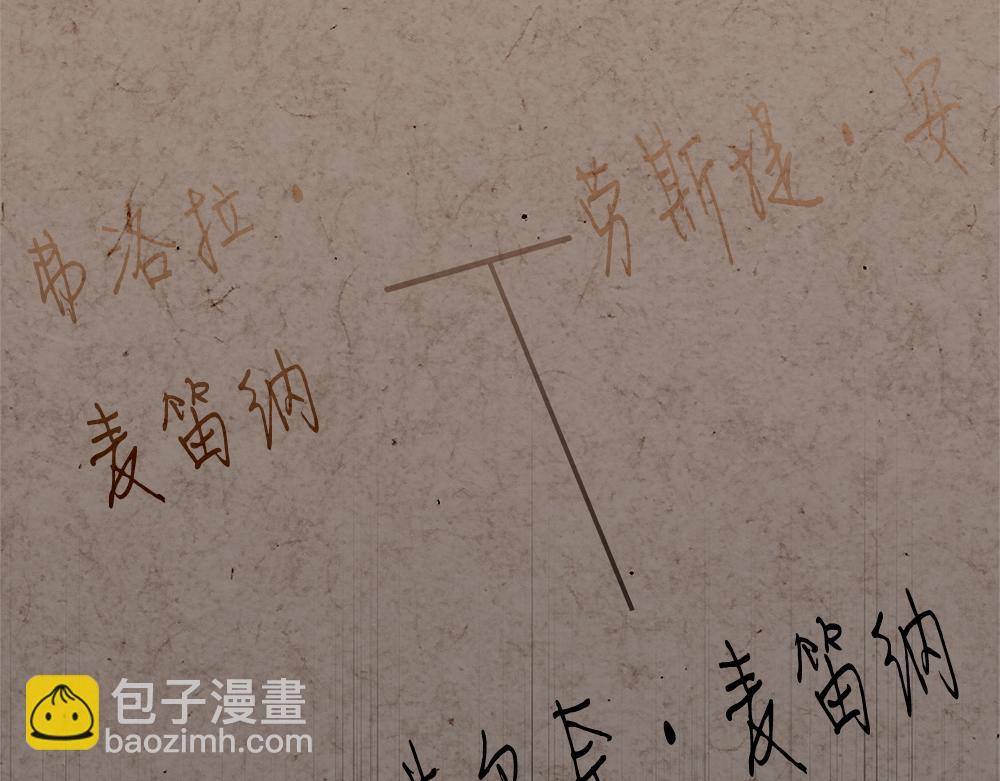 弗洛拉·
麦笛纳
劳斯提·安
卡·麦笛纳
包子漫畫
baozimh.com